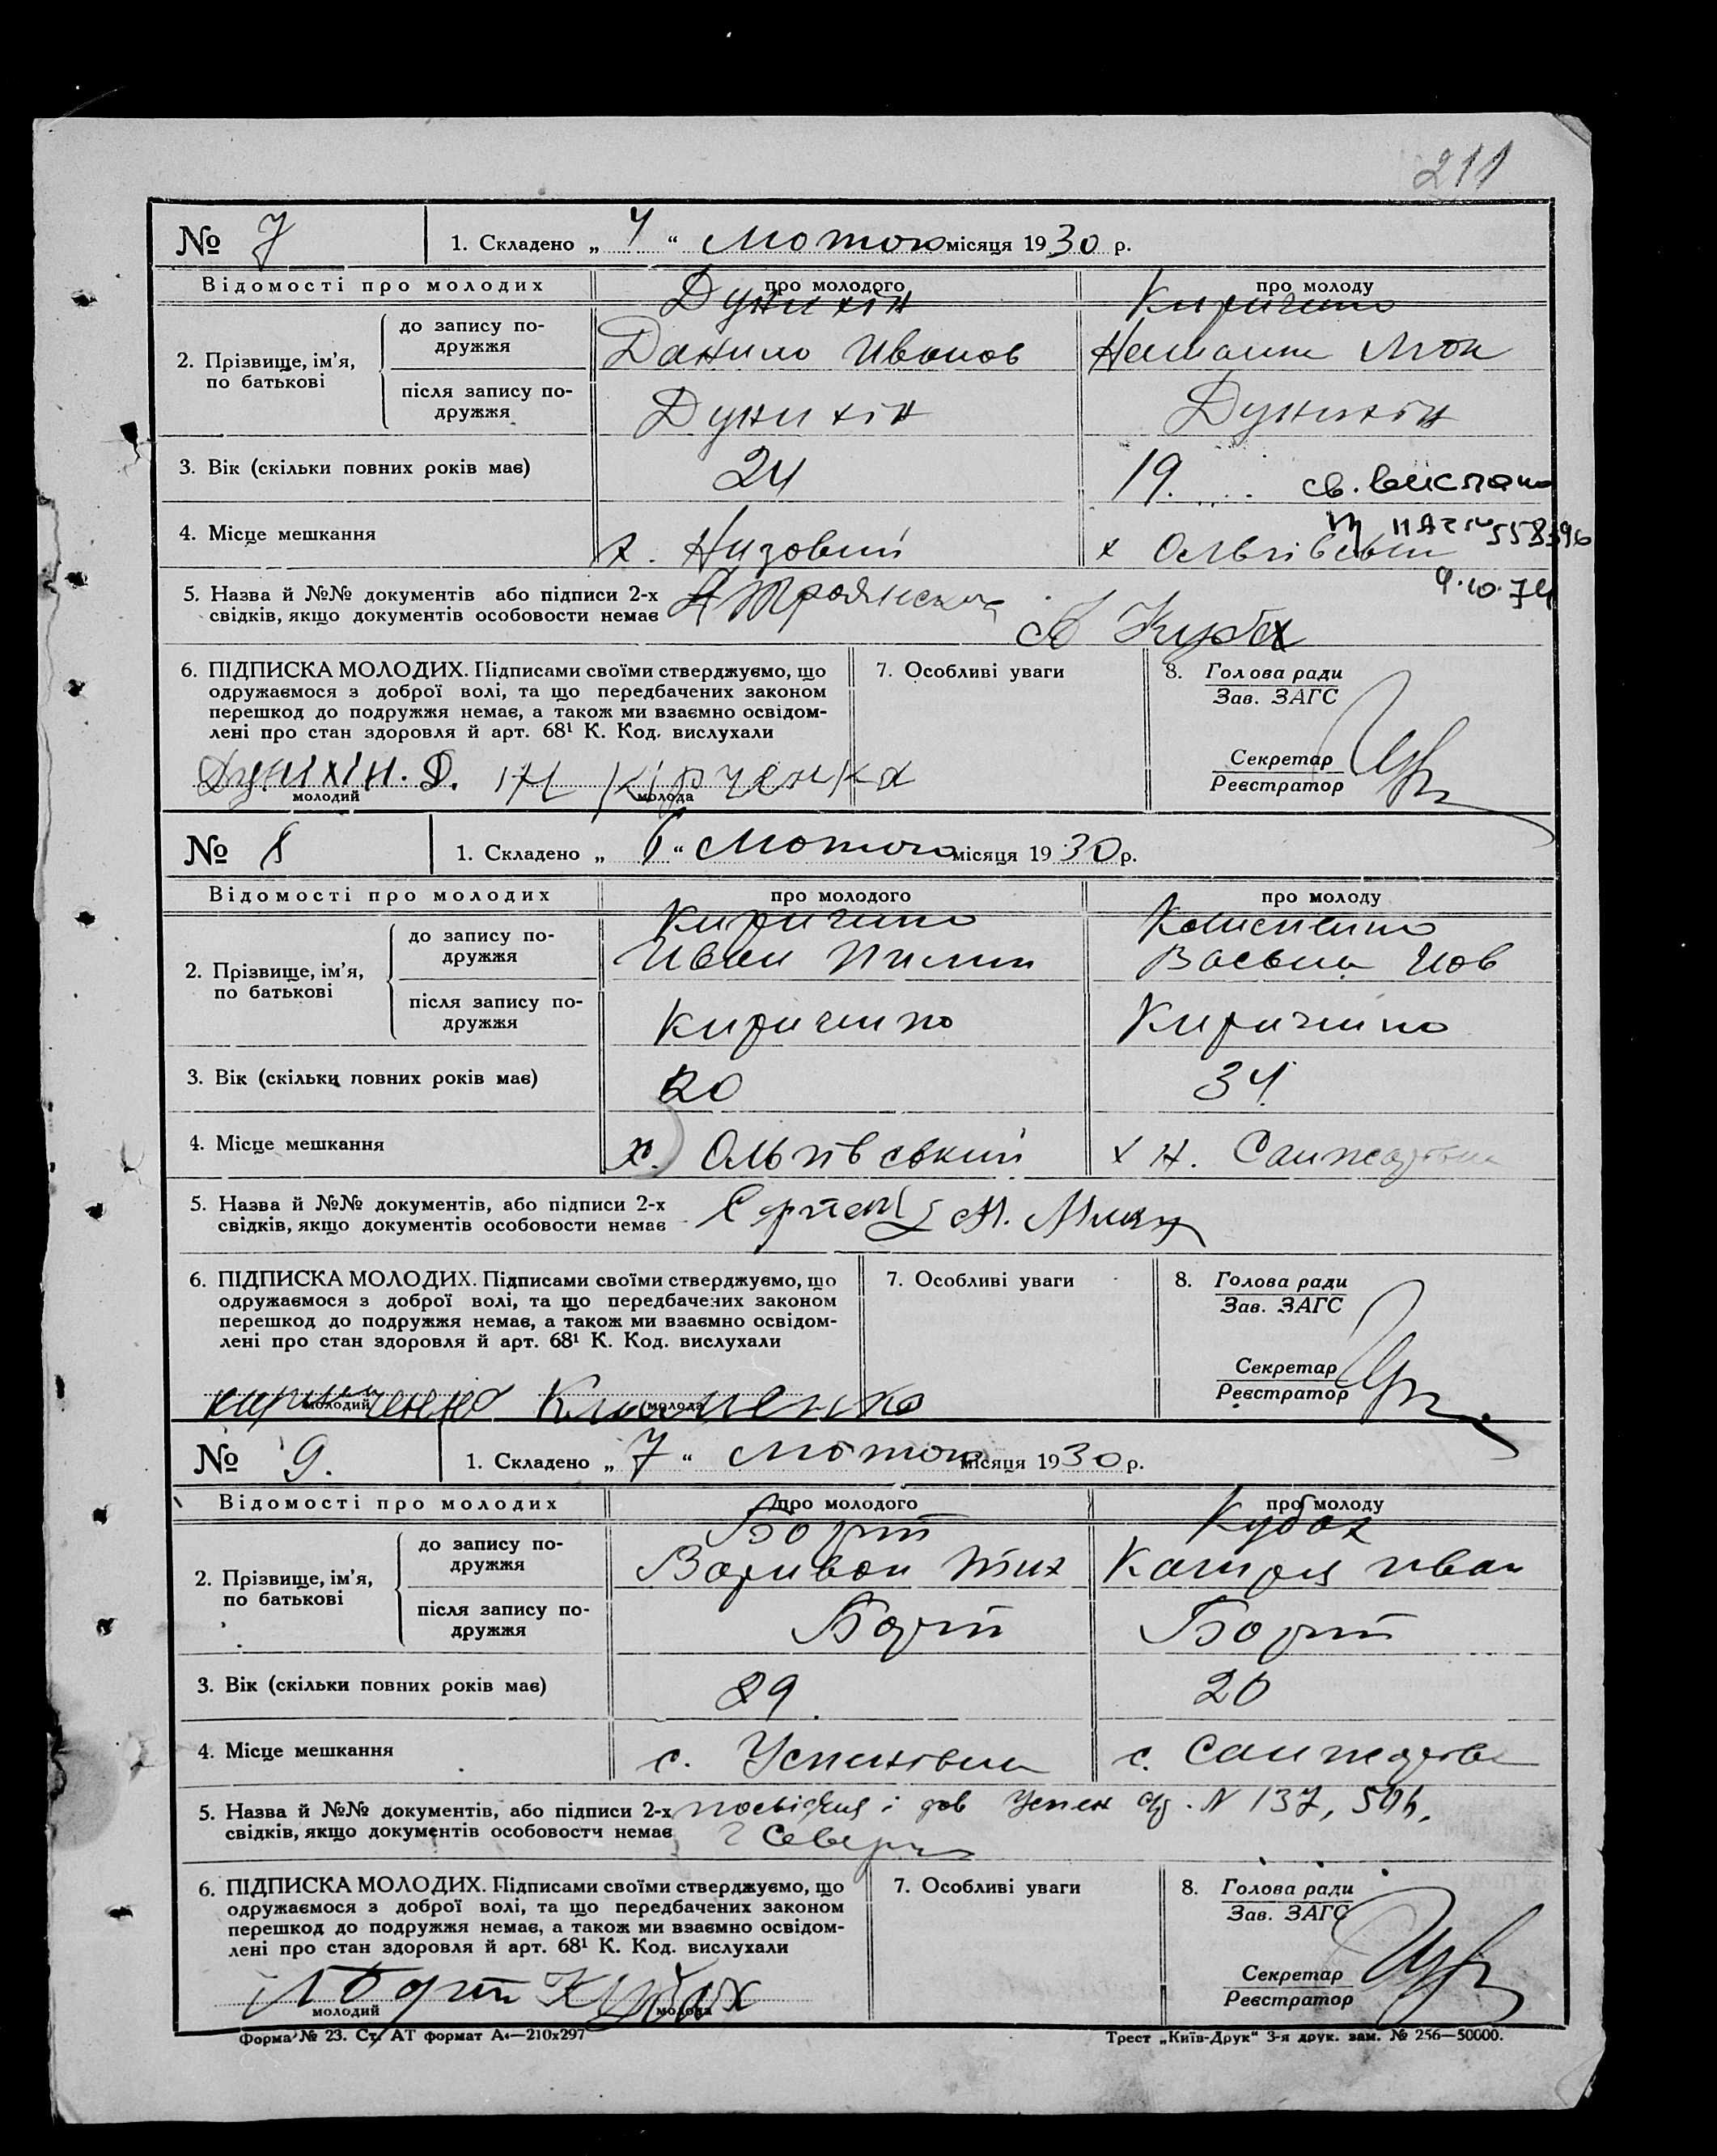 211
№ 7 1. Складено „ 4 “ Лютого місяця 1930 р.
Відомості про молодих про молодого про молоду
Дунихін Кириченко
2. Прізвище, ім’я, по батькові
до запису подружжя
Данило Иванов
після запису подружжя
Дунихін Дунихін
3. Вік (скільки повних років має) 24 19.
4. Місце мешкання х. Низовий х Ольгівськи
9.10.74
5. Назва й №№ документів або підписи 2-х
свідків, якщо документів особовости немає
6. ПІДПИСКА МОЛОДИХ. Підписами своїми стверджуємо, що
одружаємося з доброї волі, та що передбачених законом
перешкод до подружжя немає, а також ми взаємно освідом-
лені про стан здоровля й арт. 68¹ К. Код. вислухали
Дуніхін. Д.
молодий молода
7. Особливі уваги
8. Голова ради
Зав. ЗАГС
Секретар
Реєстратор
№ 8 1. Складено „ 6 “ Лютого місяця 1930 р.
Відомості про молодих про молодого про молоду
Кириченко
2. Прізвище, ім’я, по батькові
до запису подружжя
Иван Пилип
після запису подружжя
Кириченко Кириченко
3. Вік (скільки повних років має) 20 34
4. Місце мешкання х. Ольгівський х Н. Санжарівка
5. Назва й №№ документів, або підписи 2-х
свідків, якщо документів особовости немає
6. ПІДПИСКА МОЛОДИХ. Підписами своїми стверджуємо, що
одружаємося з доброї волі, та що передбачених законом
перешкод до подружжя немає, а також ми взаємно освідом-
лені про стан здоровля й арт. 68¹ К. Код. вислухали
кириченко
молодий молода
7. Особливі уваги
8. Голова ради
Зав. ЗАГС
Секретар
Реєстратор
№ 9. 1. Складено „ 7 “ Лютого місяця 1930 р.
Відомості про молодих про молодого про молоду
Борт Кубах
2. Прізвище, ім’я, по батькові
до запису подружжя
Варивон Тих Катря Иван
після запису подружжя
Борт Борт
3. Вік (скільки повних років має) 29 20
4. Місце мешкання с. Успенівка с. Санжарівка
5. Назва й №№ документів, або підписи 2-х
свідків, якщо документів особовости немає
N 137,
6. ПІДПИСКА МОЛОДИХ. Підписами своїми стверджуємо, що
одружаємося з доброї волі, та що передбачених законом
перешкод до подружжя немає, а також ми взаємно освідом-
лені про стан здоровля й арт. 68¹ К. Код. вислухали
Борт Кубах
молодий молода
7. Особливі уваги
8. Голова ради
Зав. ЗАГС
Секретар
Реєстратор
Форма № 23. Ст. АТ формат А₄—210х297
Трест „Київ-Друк“ 3-я друк. зам. № 256—50000.